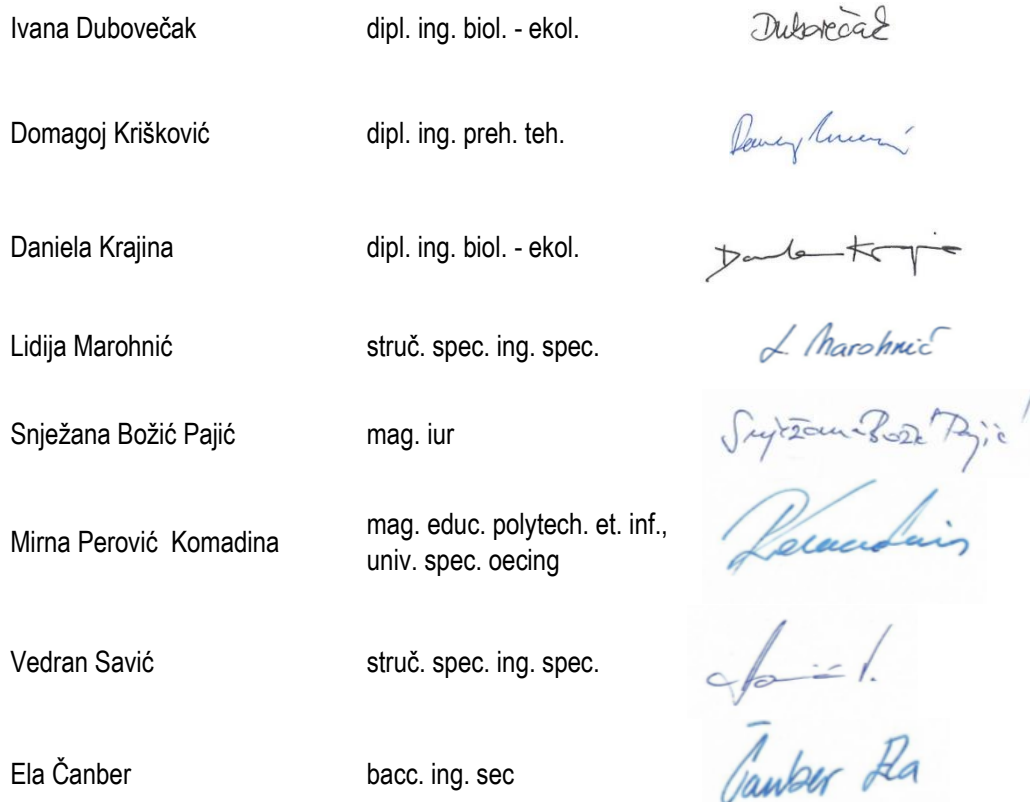 Ivana Dubovečak dipl. ing. biol. - ekol. Dubovečak
Domagoj Krišković dipl. ing. preh. teh.
Daniela Krajina dipl. ing. biol. - ekol.
Lidija Marohnić struč. spec. ing. spec. L. Marohnić
Snježana Božić Pajić mag. iur Snježana Božić Pajić
Mirna Perović Komadina mag. educ. polytech. et. inf.,
univ. spec. oecing
Vedran Savić struč. spec. ing. spec.
Ela Čanber bacc. ing. sec Čanber Ela